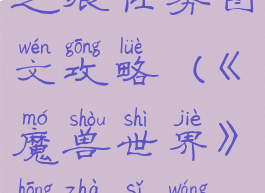 wén gōng lüè
文攻略(《
mó shòu shì jiè
魔兽世界》
hōng zhà sǐ wáng